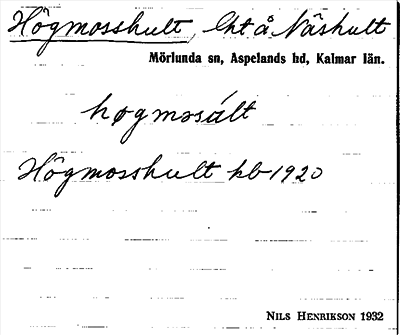 Högmosshult, lht å Näshult
Mörlunda sn, Aspelands hd, Kalmar län.
høgmosúlt
Högmosshult kb 1920
NILS HENRIKSON 1932